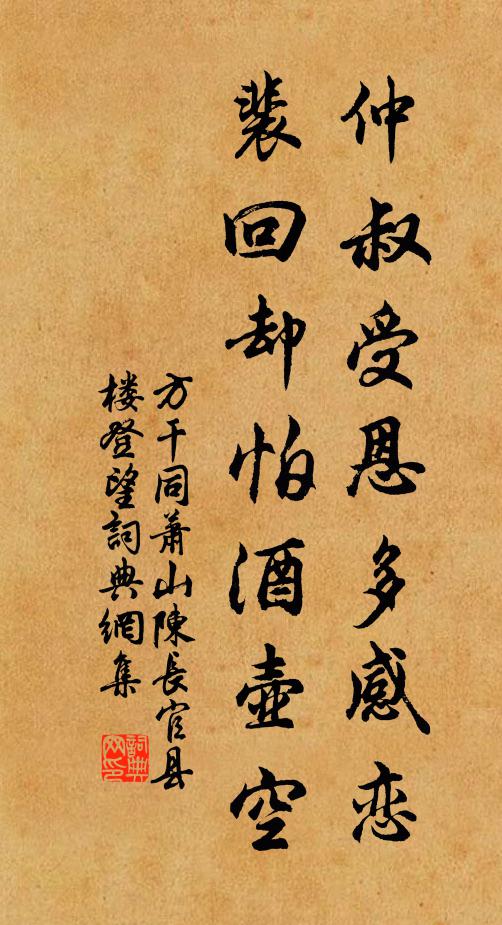 仲叔受恩多感恋
裴回却怕酒壶空
方干同萧山陳长官县
楼登望詞典網集
詞典网印